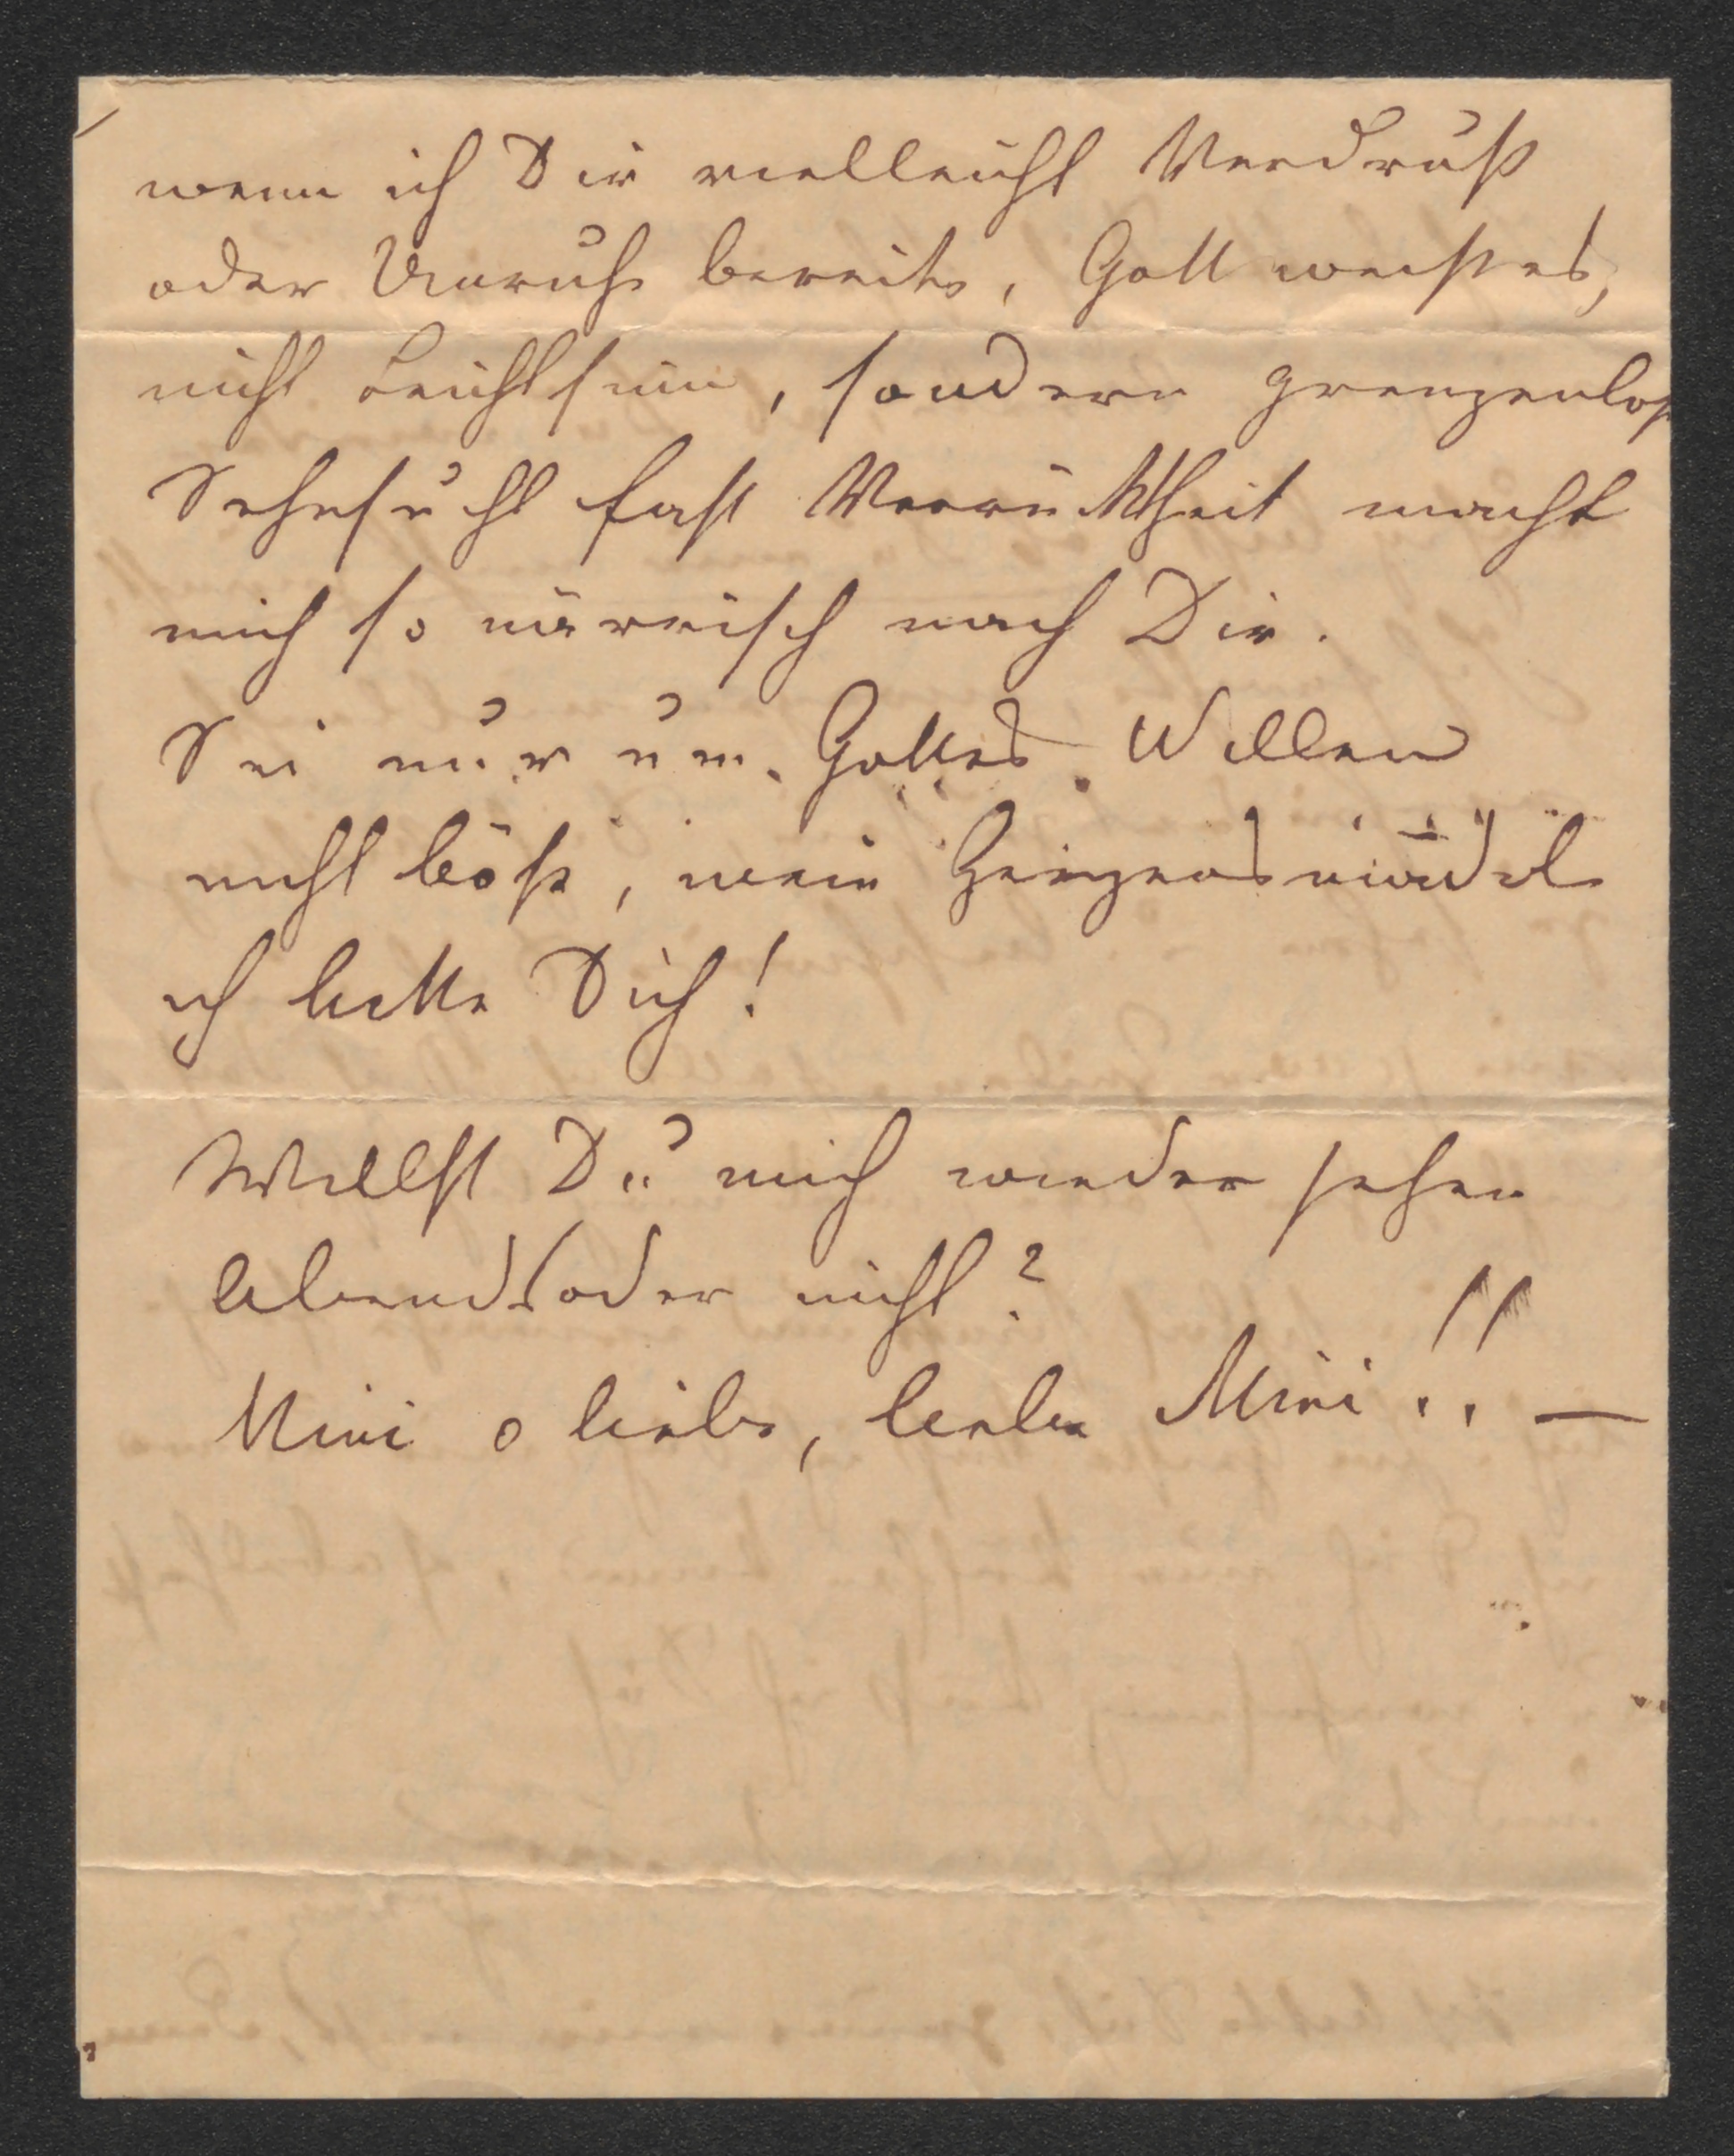 wenn ich Dir vielleicht Verdruß
oder Unruhe bereite, Gott weiß es,
nicht Leichtsinn, sondern grenzenlose
Sehnsucht fast Verrücktheit macht
mich so närrisch nach Dir.
Sei nur um Gottes Willen
nicht böse, mein Herzensmädel
ich bitte Dich!
Willst Du mich wieder sehen
Abends oder nicht?
Mini o liebe, liebe Mini!! —